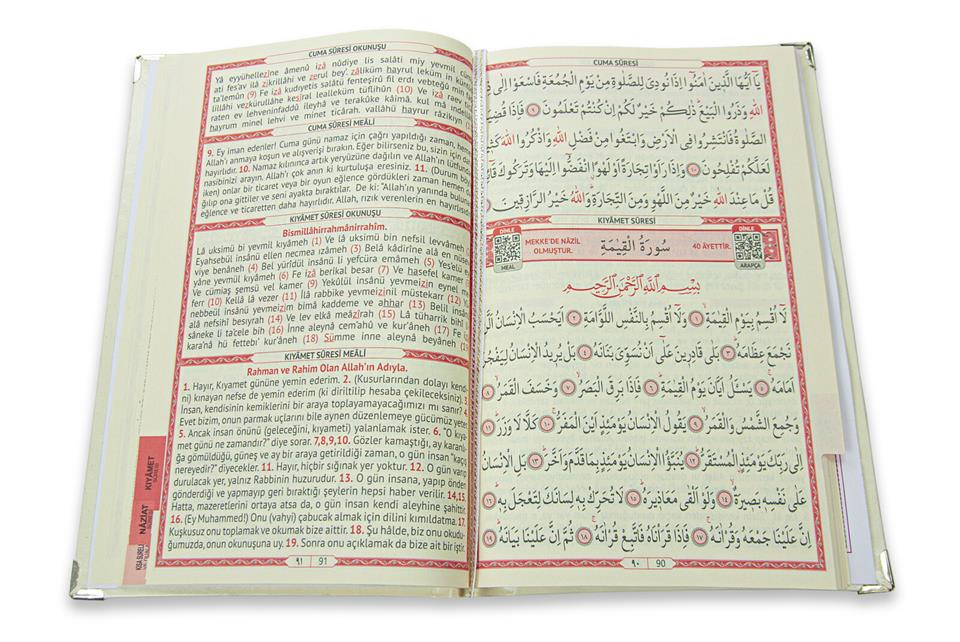 CUMA SÛRESİ
يَا اَيُّهَا الَّذٖينَ اٰمَنُٓوا اِذَا نُودِيَ لِلصَّلٰوةِ مِنْ يَوْمِ الْجُمُعَةِ فَاسْعَوْا اِلٰى
اللّٰهِ وَذَرُوا الْبَيْعَ ذٰلِكُمْ خَيْرٌ لَكُمْ اِنْ كُنْتُمْ تَعْلَمُونَ ﴿٩﴾ فَاِذَا
الصَّلٰوةُ فَانْتَشِرُوا فِي الْاَرْضِ وَابْتَغُوا مِنْ فَضْلِ اللّٰهِ وَاذْكُرُوا اللّٰهَ
لَعَلَّكُمْ تُفْلِحُونَ ﴿١٠﴾ وَاِذَا رَاَوْا تِجَارَةً اَوْ لَهْوًا انْفَضُّٓوا اِلَيْهَا وَتَرَكُوكَ
قُلْ مَا عِنْدَ اللّٰهِ خَيْرٌ مِنَ اللَّهْوِ وَمِنَ التِّجَارَةِ وَاللّٰهُ خَيْرُ الرَّازِقٖينَ
KIYÂMET SÛRESİ
DİNLE
MEAL
MEKKE'DE NÂZİL
OLMUŞTUR.
سُورَةُ الْقِيٰمَةِ
40 ÂYETTİR.
DİNLE
ARAPÇA
بِسْمِ اللّٰهِ الرَّحْمٰنِ الرَّحٖيمِ
لَٓا اُقْسِمُ بِيَوْمِ الْقِيٰمَةِ ﴿١﴾ وَلَٓا اُقْسِمُ بِالنَّفْسِ اللَّوَّامَةِ ﴿٢﴾ اَيَحْسَبُ الْاِنْسَانُ
نَجْمَعَ عِظَامَهُ ﴿٣﴾ بَلٰى قَادِرٖينَ عَلٰٓى اَنْ نُسَوِّيَ بَنَانَهُ ﴿٤﴾ بَلْ يُرٖيدُ الْاِنْسَانُ
اَمَامَهُ ﴿٥﴾ يَسْـَٔلُ اَيَّانَ يَوْمُ الْقِيٰمَةِ ﴿٦﴾ فَاِذَا بَرِقَ الْبَصَرُ ﴿٧﴾ وَخَسَفَ الْقَمَرُ ﴿٨﴾
وَجُمِعَ الشَّمْسُ وَالْقَمَرُ ﴿٩﴾ يَقُولُ الْاِنْسَانُ يَوْمَئِذٍ اَيْنَ الْمَفَرُّ ﴿١٠﴾ كَلَّا لَا وَزَرَ ﴿١١﴾
اِلٰى رَبِّكَ يَوْمَئِذٍ الْمُسْتَقَرُّ ﴿١٢﴾ يُنَبَّؤُا الْاِنْسَانُ يَوْمَئِذٍ بِمَا قَدَّمَ وَاَخَّرَ ﴿١٣﴾ بَلِ
عَلٰى نَفْسِهٖ بَصٖيرَةٌ ﴿١٤﴾ وَلَوْ اَلْقٰى مَعَاذٖيرَهُ ﴿١٥﴾ لَا تُحَرِّكْ بِهٖ لِسَانَكَ لِتَعْجَلَ بِهٖ ﴿١٦﴾
اِنَّ عَلَيْنَا جَمْعَهُ وَقُرْاٰنَهُ ﴿١٧﴾ فَاِذَا قَرَاْنَاهُ فَاتَّبِعْ قُرْاٰنَهُ ﴿١٨﴾ ثُمَّ اِنَّ عَلَيْنَا بَيَانَهُ ﴿١٩﴾
٩٠ 90
CUMA SÛRESİ OKUNUŞU
Yâ eyyühellezîne âmenû izâ nûdiye lis salâti miy yevmil
ati fes'av ilâ zikrillâhi ve zerul bey'. zâliküm hayrul leküm in
ta'lemûn (9) Fe izâ kudıyetis salâtü fenteşirû fil erdı vebteğû min
lillâhi vezkürullâhe kesîral lealleküm tüflihûn (10) Ve izâ raev
raten ev lehveninfaddû ileyhâ ve terakûke kâimâ. kul mâ
hayrum minel lehvi ve minet ticârah. vallâhü hayrur râzikıyn
CUMA SÛRESİ MEÂLİ
9. Ey iman edenler! Cuma günü namaz için çağrı yapıldığı zaman,
Allah'ı anmaya koşun ve alışverişi bırakın. Eğer bilirseniz bu, sizin için
hayırlıdır. 10. Namaz kılınınca artık yeryüzüne dağılın ve Allah'ın
nasibinizi arayın. Allah'ı çok anın ki kurtuluşa eresiniz. 11. (Durum böyle
iken) onlar bir ticaret veya bir oyun eğlence gördükleri zaman hemen
ğılıp ona gittiler ve seni ayakta bıraktılar. De ki: "Allah'ın yanında
eğlence ve ticaretten daha hayırlıdır. Allah, rızık verenlerin en
KIYÂMET SÛRESİ OKUNUŞU
Bismillâhirrahmânirrahîm.
Lâ uksimü bi yevmil kıyâmeh (1) Ve lâ uksimü bin nefsil levvâmeh
Eyahsebül insânü ellen necmea ızâmeh (3) Belâ kâdirîne alâ en
viye benâneh (4) Bel yürîdül insânü li yefcüra emâmeh (5)
yâne yevmül kıyâmeh (6) Fe izâ berikal besar (7) Ve hasefel kamer
Ve cümiaş şemsü vel kamer (9) Yekûlül insânü yevmeizin eynel
ferr (10) Kellâ lâ vezer (11) İlâ rabbike yevmeizinil müstekarr (12)
nebbeül insânü yevmeizim bimâ kaddeme ve ahhar (13) Belil
alâ nefsihî besıyrah (14) Ve lev elkâ meâzîrah (15) Lâ tüharrik bihî
sâneke li ta'cele bih (16) İnne aleynâ cem'ahû ve kur'âneh (17) Fe
kara'nâ hü fettebı' kur'âneh (18) Sümme inne aleynâ beyâneh
KIYÂMET SÛRESİ MEÂLİ
Rahman ve Rahim Olan Allah'ın Adıyla.
1. Hayır, Kıyamet gününe yemin ederim. 2. (Kusurlarından dolayı kendi-
ni) kınayan nefse de yemin ederim (ki diriltilip hesaba çekileceksiniz).
İnsan, kendisinin kemiklerini bir araya toplayamayacağımızı mı sanır?
Evet bizim, onun parmak uçlarını bile aynen düzenlemeye gücümüz
5. Ancak insan önünü (geleceğini, kıyameti) yalanlamak ister. 6. "O kıya-
met günü ne zamandır?" diye sorar. 7,8,9,10. Gözler kamaştığı, ay
ğa gömüldüğü, güneş ve ay bir araya getirildiği zaman, o gün insan
nereyedir?" diyecekler. 11. Hayır, hiçbir sığınak yer yoktur. 12. O gün
durulacak yer, yalnız Rabbinin huzurudur. 13. O gün insana, yapıp önden
gönderdiği ve yapmayıp geri bıraktığı şeylerin hepsi haber verilir. 14,15.
Hatta, mazeretlerini ortaya atsa da, o gün insan kendi aleyhine şahittir.
16. (Ey Muhammed!) Onu (vahyi) çabucak almak için dilini kımıldatma. 17.
Kuşkusuz onu toplamak ve okumak bize aittir. 18. Şu hâlde, biz onu okudu-
ğumuzda, onun okunuşuna uy. 19. Sonra onu açıklamak da bize ait bir
٩١ 91
KIYÂMET
SÛRESİ
NÂZİAT
KISA SÛRELER